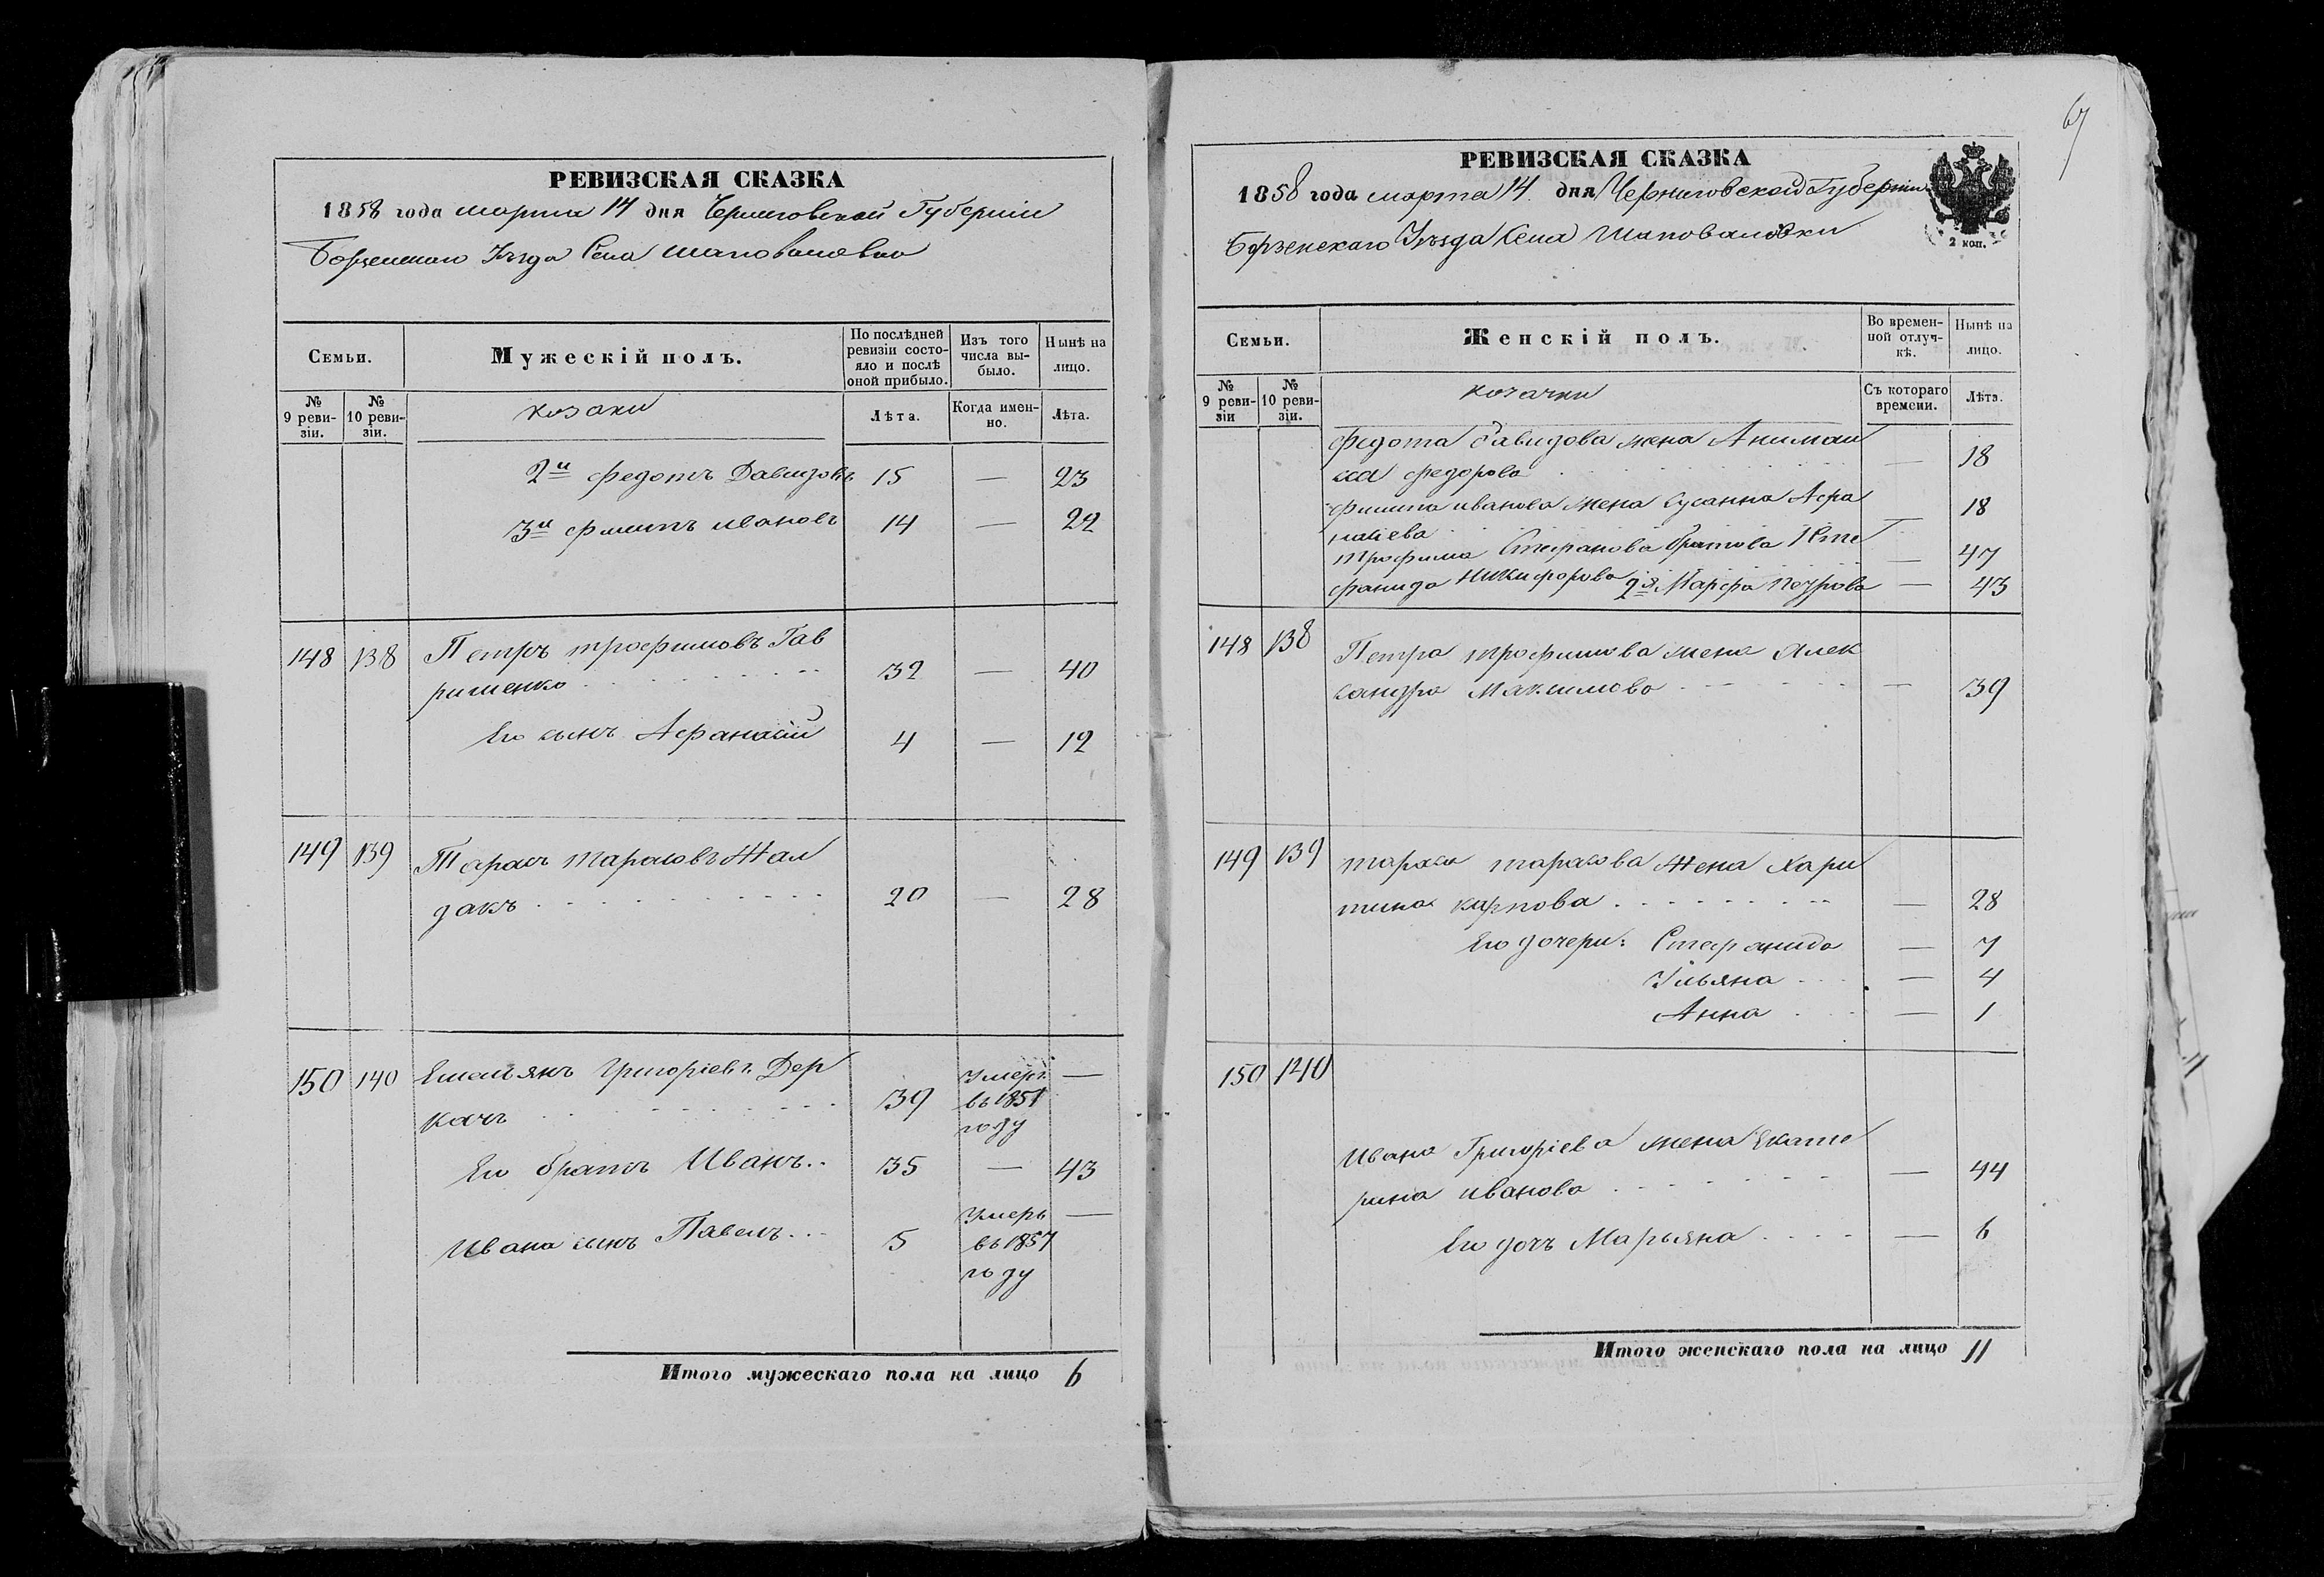 РЕВИЗСКАЯ СКАЗКА
1858 года марта 14 дня Черниговской Губернiи
Борзенскаго Уѣзда Села Шаповаловки
Семьи.
Мужескiй полъ.
По послѣдней ревизiи состо-
яло и послѣ оной прибыло.
Изъ того числа вы-
было.
Нынѣ на лицо.
№ 9 реви-
зiи.
№ 10 реви-
зiи.
козаки
Лѣта.
Когда имен-
но.
Лѣта.
2й Федотъ Давидовъ 15 — 23
3й Филипъ Ивановъ 14 — 22
148 138 Петръ Трофимовъ Гав
ришенко 32 — 40
Его сынъ Афанасiй 4 — 12
149 139 Тарасъ Тарасовъ Жал
дакъ 20 — 28
150 140 Емельянъ Григорiевъ Дер
качъ 39 Умеръ —
въ 1851
году
Его братъ Иванъ 35 — 43
Ивана сынъ Павелъ 5 Умеръ —
въ 1857
году
Итого мужескаго пола на лицо 6
67
РЕВИЗСКАЯ СКАЗКА
1858 года марта 14 дня Черниговской Губернiи
Борзенскаго Уѣзда Села Шаповаловки
2 коп.
Семьи.
Женскiй полъ.
Во времен-
ной отлуч-
кѣ.
Нынѣ на лицо.
№ 9 реви-
зiи
№ 10 реви-
зiи.
козачки
Съ котораго времени.
Лѣта.
Федота Давидова жена Анимаи
са Федорова — 18
Филипа Иванова жена Сусанна Афа
насiева — 18
Трофима Стефанова братова Сте
фанида Никифорова — 47
2я Марфа Петрова — 43
148 138 Петра Трофимова жена Алек
сандра Максимова — 39
149 139 Тараса Тарасова жена Хари
тина Карпова — 28
Его дочери: Стефанида — 7
Ульяна — 4
Анна — 1
150 140
Ивана Григорiева жена Екате
рина Иванова — 44
Его дочъ Марьяна — 6
Итого женскаго пола на лицо 11